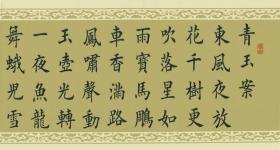 青玉案
東風夜放
花千樹更
吹落星如
雨寶馬鵰
車香滿路
鳳嘯聲動
玉壺光轉
一夜魚龍
舞蛾兒雪